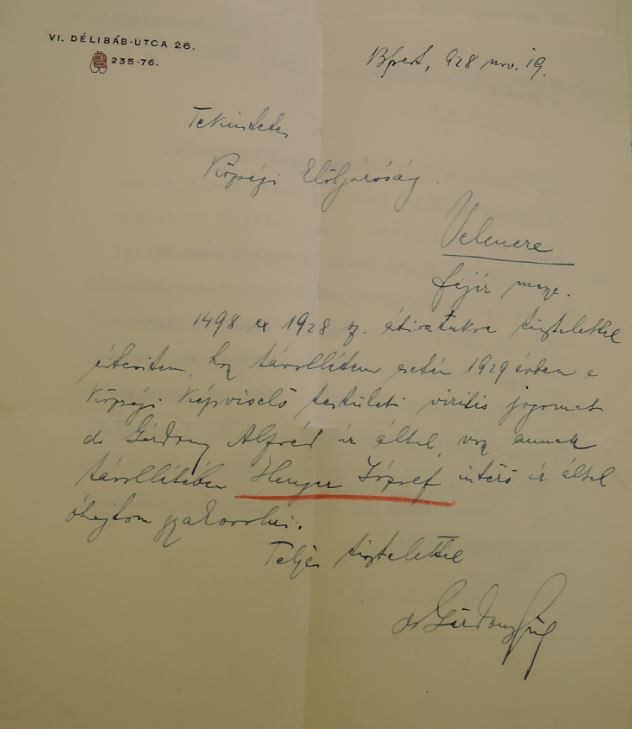 VI. DÉLIBÁB-UTCA 26.
235-76.
Bpest, 928 nov. 19.
Tekintetes
Községi Elöljáróság.
Velencze
fejér megye.
1498 ex 1928 sz. átiratukra tisztelettel
értesitem, hogy távollétem esetén 1929 évben a
Községi Képviselő testületi virilis jogomat
dr Gárdony Alfréd úr által, vagy annak
távollétében József intéző úr által
óhajtom gyakorolni.
Teljes tisztelettel
dr Gárdony